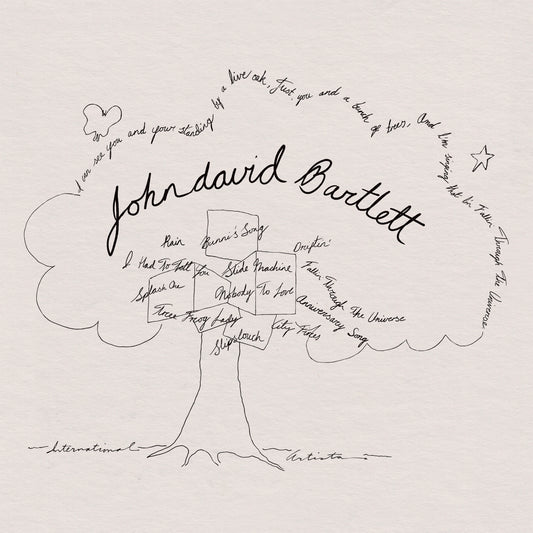 I can see you and your standing by a live oak, Just you and a bunch of trees, And I'm singing that I'm Fallin Through The Universe
Johndavid Bartlett
Rain
Bunni's Song
Driftin'
I Had To Tell You
Slide Machine
Fallin Through The Universe
Splash One
Nobody To Love
Anniversary Song
Tree Frog Lady
City Times
Slipslouch
International Artists